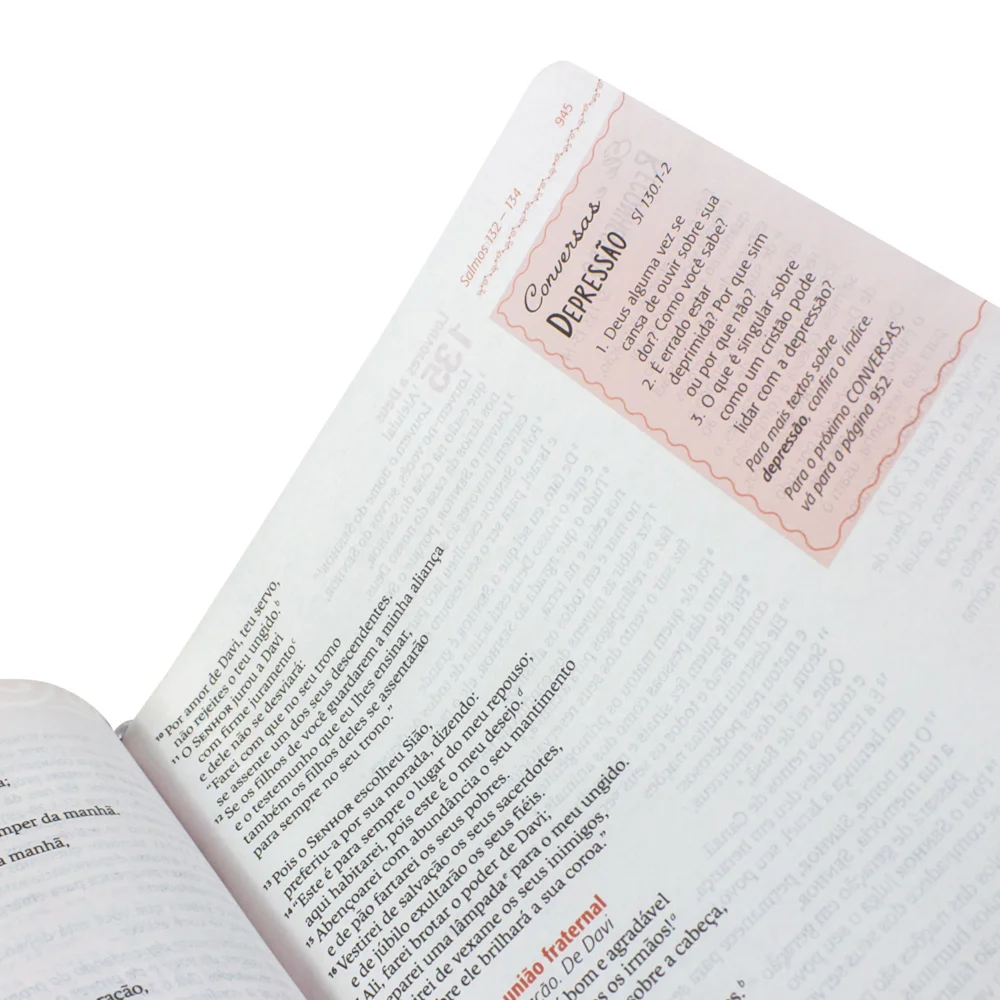 mper da manhã.
a manhã,
ração,
Salmos 132 – 134
945
Conversas
DEPRESSÃO Sl 130.1-2
1. Deus alguma vez se
cansa de ouvir sobre sua
dor? Como você sabe?
2. É errado estar
deprimida? Por que sim
ou por que não?
3. O que é singular sobre
como um cristão pode
lidar com a depressão?
Para mais textos sobre
depressão, confira o índice.
Para o próximo CONVERSAS,
vá para a página 952.
10 Por amor de Davi, teu servo,
não rejeites o teu ungido. b
11 O SENHOR jurou a Davi
com firme juramento c
e dele não se desviará:
"Farei com que no seu trono
se assente um dos seus descendentes.
12 Se os filhos de você guardarem a minha aliança
e o testemunho que eu lhes ensinar,
também os filhos deles se assentarão
para sempre no seu trono."
13 Pois o SENHOR escolheu Sião,
preferiu-a por sua morada, dizendo:
14 "Este é para sempre o lugar do meu repouso;
aqui habitarei, pois este é o meu desejo. d
15 Abençoarei com abundância o seu mantimento
e de pão fartarei os seus pobres.
16 Vestirei de salvação os seus sacerdotes,
e de júbilo exultarão os seus fiéis.
Ali, farei brotar o poder de Davi;
pararei uma lâmpada e para o meu ungido.
rirei de vexame os seus inimigos,
bre ele brilhará a sua coroa."
união fraternal
ção. De Davi
bom e agradável
os irmãos! a
sobre a cabeça,